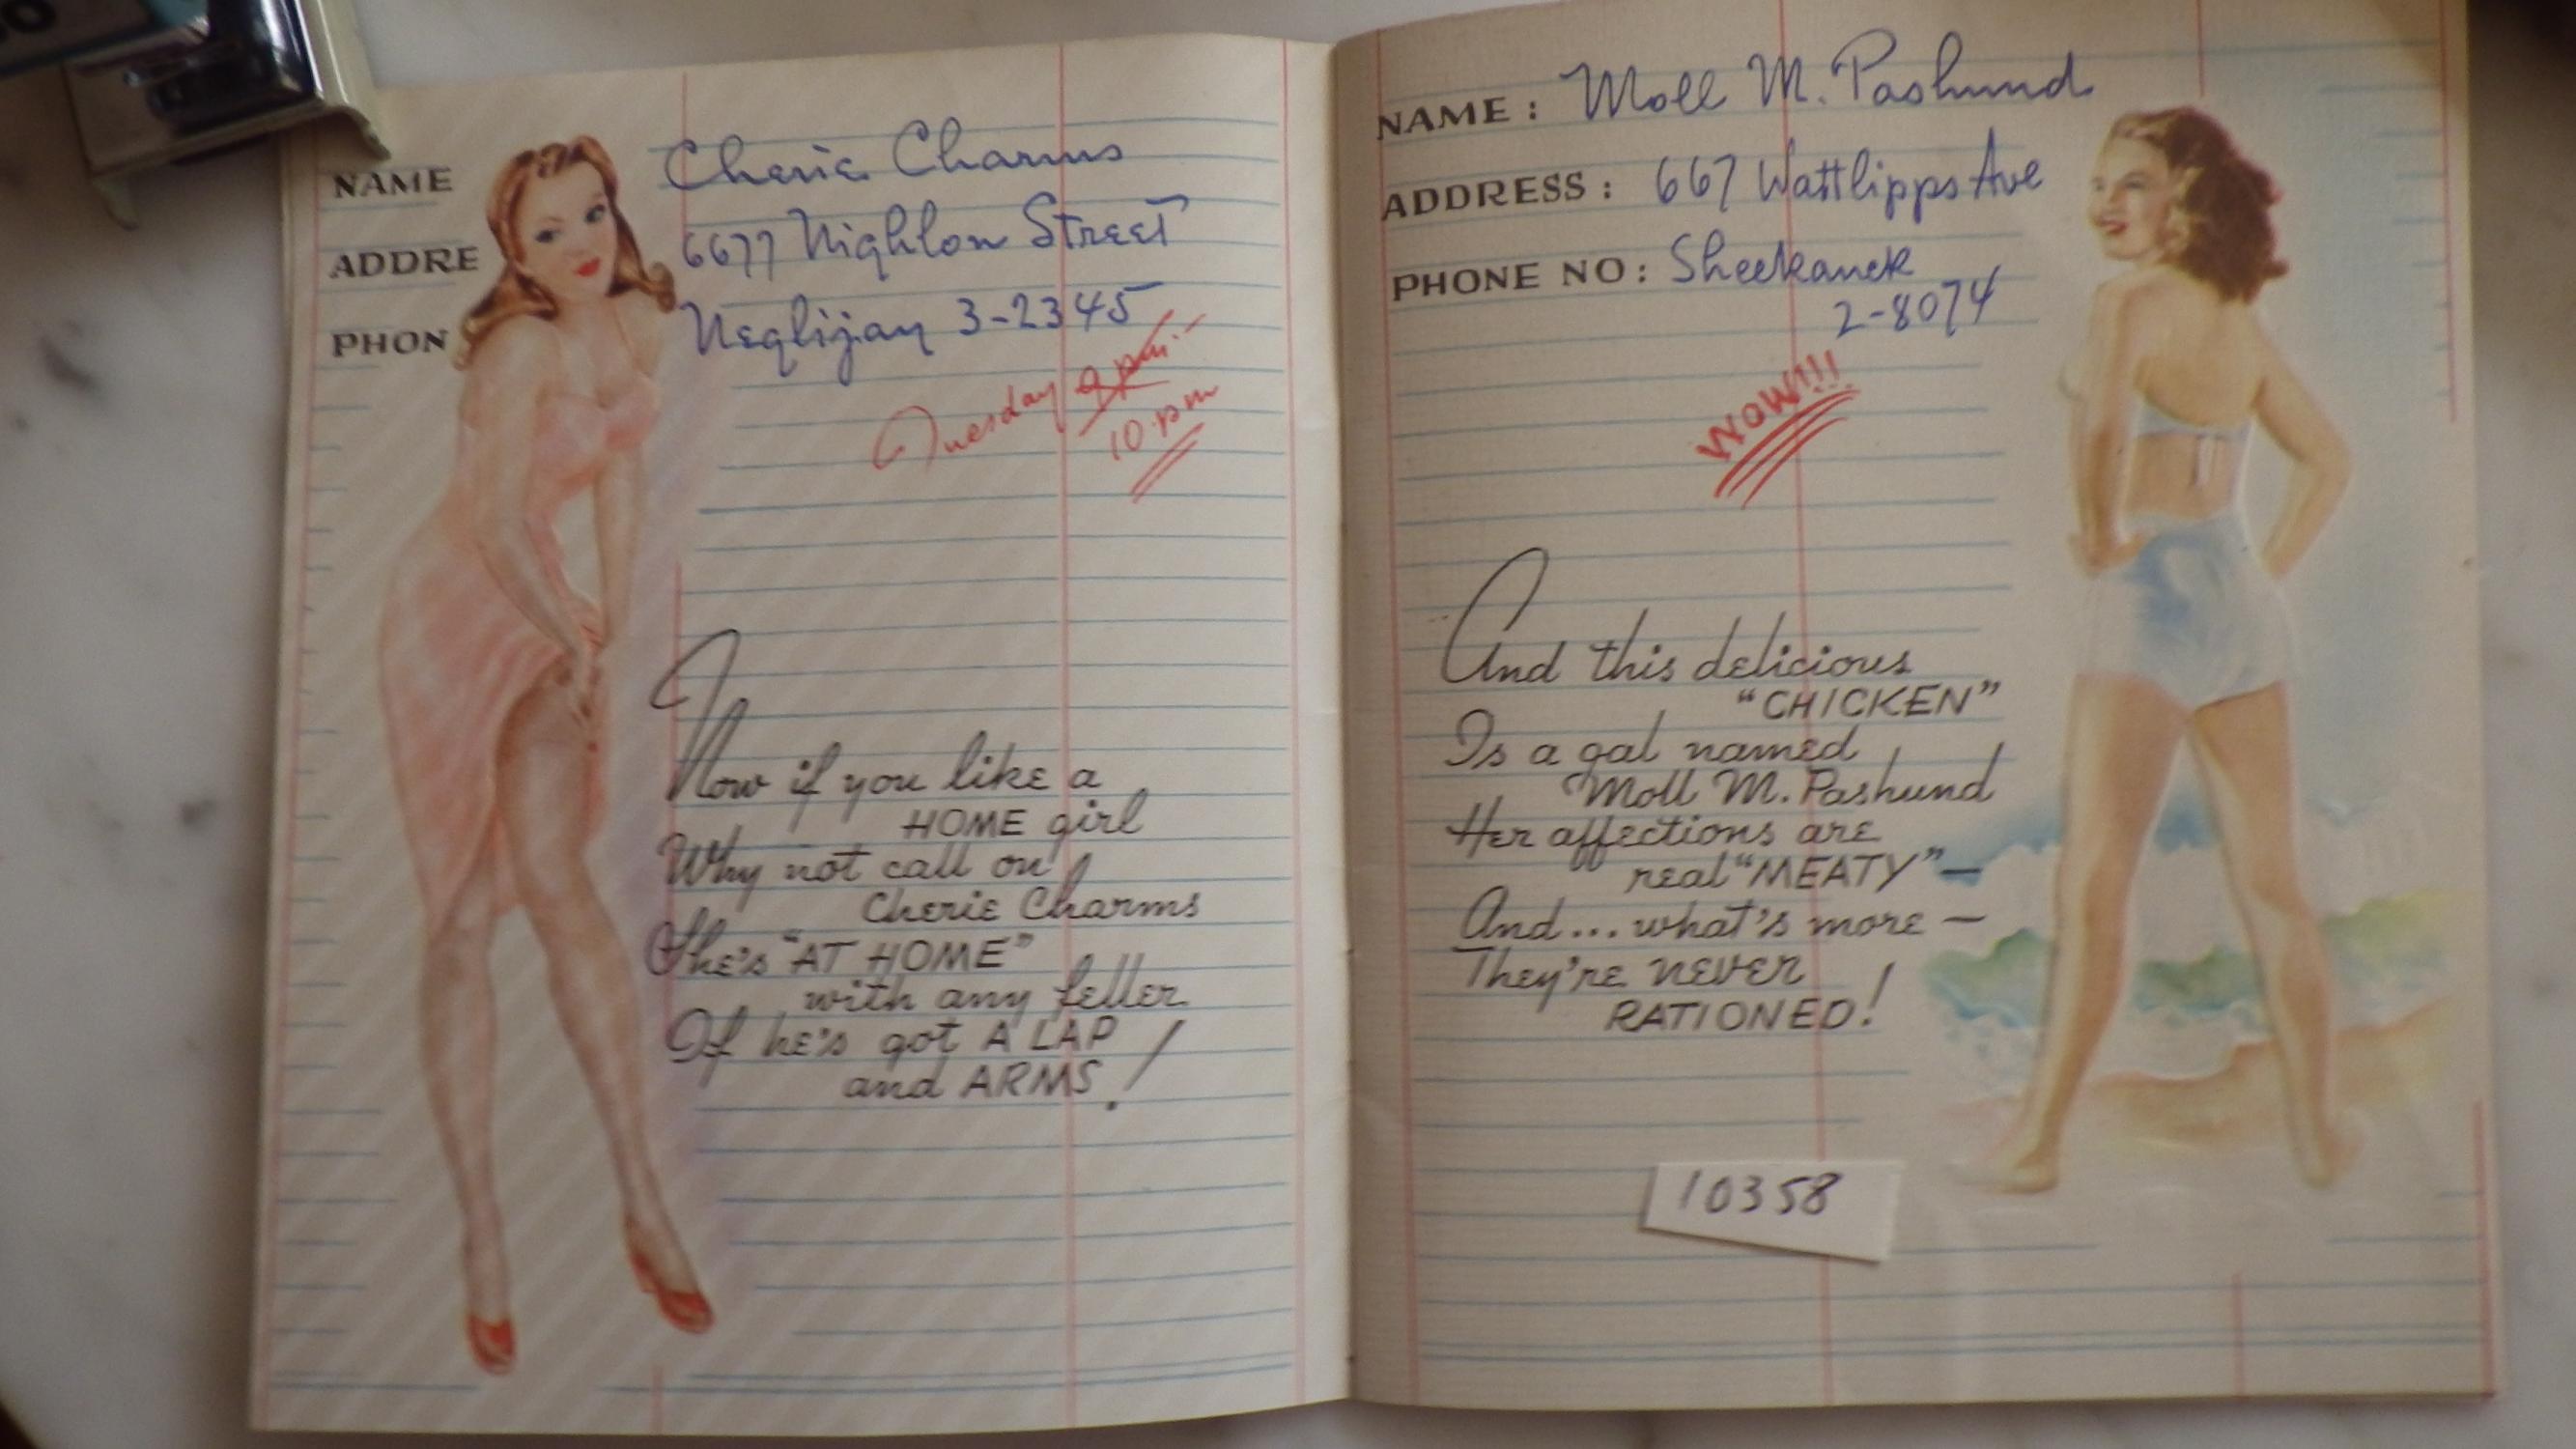 NAME Cherie Charms
ADDRE 6677 Nighlon Street
PHON Neglijay 3-2345
Tuesday 9 pm.
10 pm
Now if you like a
HOME girl
Why not call on
Cherie Charms
She's "AT HOME"
with any feller
If he's got A LAP
and ARMS!
NAME: Moll M. Pashund
ADDRESS: 667 Wattlipps Ave
PHONE NO: Sheekanek
2-8074
WOW!!!
And this delicious
"CHICKEN"
Is a gal named
Moll M. Pashund
Her affections are
real "MEATY"—
And... what's more —
They're never
RATIONED!
10358